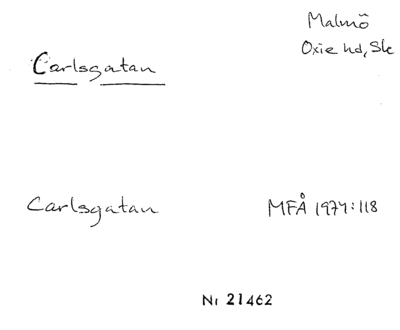 Malmö
Oxie hd, Sk
Carlsgatan
Carlsgatan MFÅ 1974:118
Nr 21462